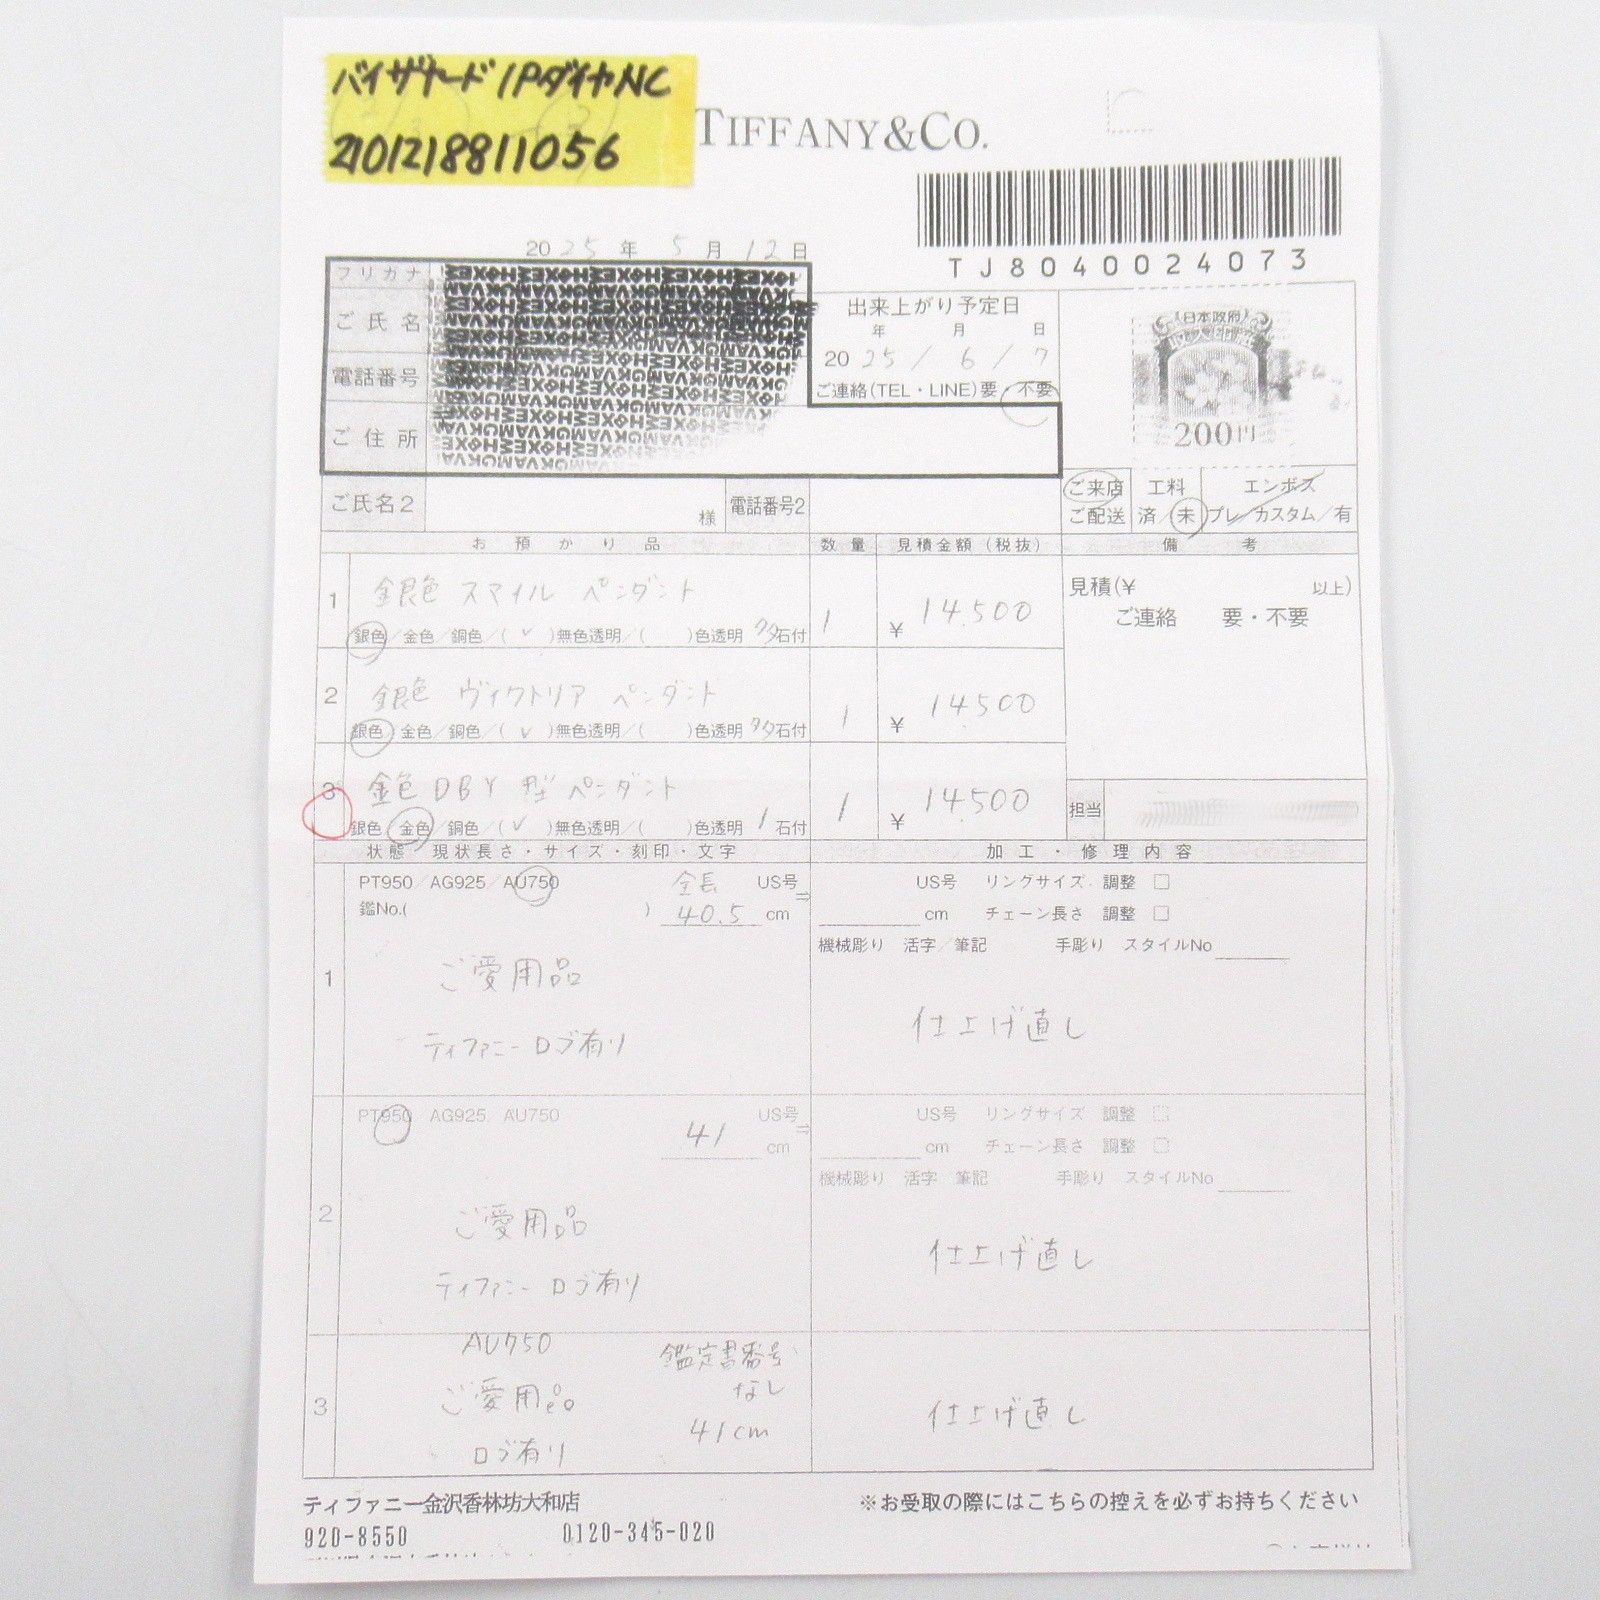 バイザヤード1PダイヤNC
2101218811056
TIFFANY&CO.
TJ8040024073
2025年5月12日
フリカナ
ご氏名
電話番号
ご住所
出来上がり予定日
年 月 日
2025/6/7
ご連絡(TEL・LINE)要・不要
日本政府
収入印紙
200円
ご氏名2 様 電話番号2
ご来店 工料 エンボス
ご配送 済/未 プレ/カスタム/有
お預かり品 数量 見積金額(税抜) 備考
1 銀色 スマイル ペンダント 1 ¥14,500
銀色/金色/銅色/(✓)無色透明/( )色透明 タタ石付
見積(¥ 以上)
ご連絡 要・不要
2 銀色 ヴィクトリア ペンダント 1 ¥14500
銀色/金色/銅色/(✓)無色透明/( )色透明 タタ石付
3 金色 DBY 型 ペンダント 1 ¥14,500
銀色/金色/銅色/(✓)無色透明/( )色透明 1石付
担当
状態 現状長さ・サイズ・刻印・文字 加工・修理内容
1
PT950/AG925/AU750 全長 US号 ⇒ US号 リングサイズ 調整 □
鑑No.( ) 40.5 cm cm チェーン長さ 調整 □
機械彫り 活字/筆記 手彫り スタイルNo
ご愛用品
ティファニーロゴ有り
仕上げ直し
2
PT950 AG925 AU750 US号 ⇒ US号 リングサイズ 調整 □
41 cm cm チェーン長さ 調整 □
機械彫り 活字 筆記 手彫り スタイルNo
ご愛用品
ティファニーロゴ有り
仕上げ直し
3
AU750 鑑定書番号
なし
ご愛用品
41cm
ロゴ有り
仕上げ直し
ティファニー金沢香林坊大和店
920-8550 0120-345-020
※お受取の際にはこちらの控えを必ずお持ちください